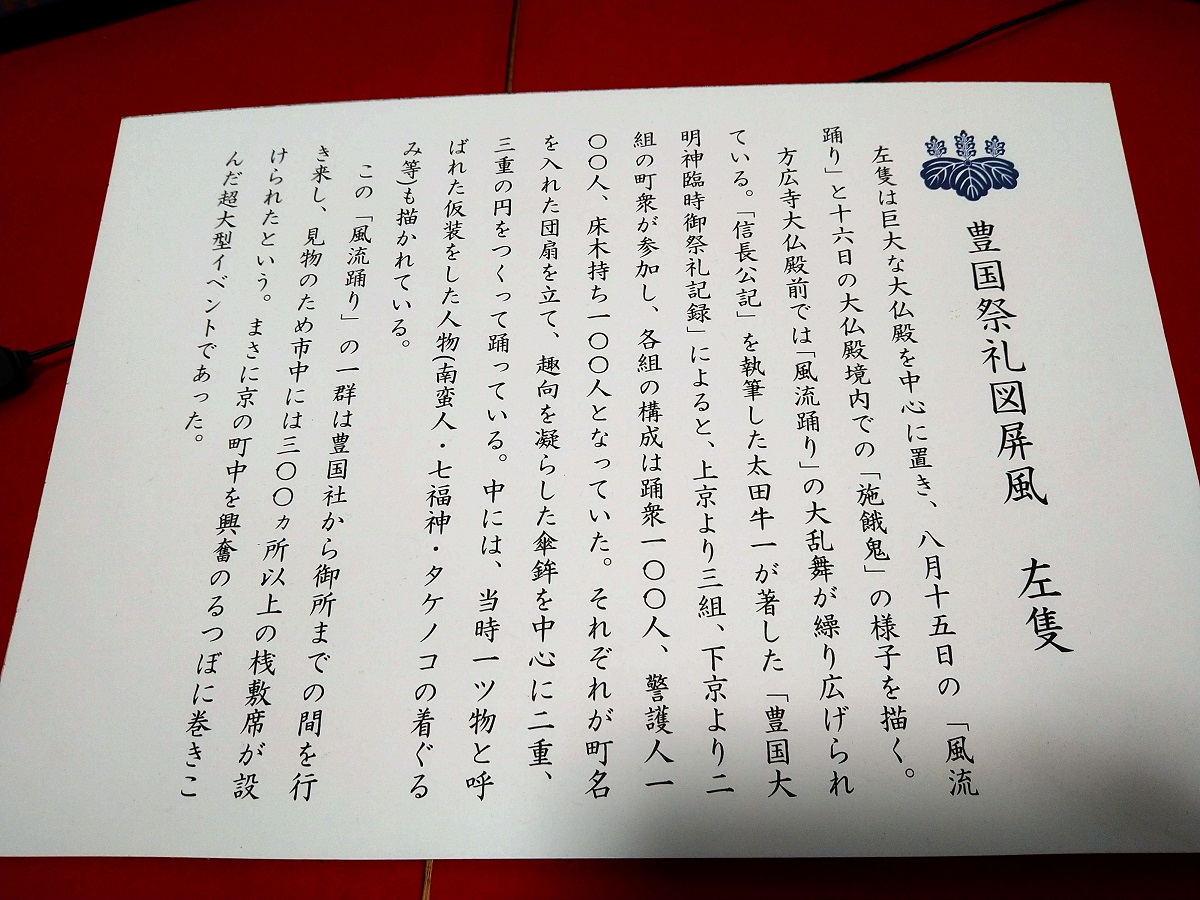 豊国祭礼図屏風 左隻
左隻は巨大な大仏殿を中心に置き、八月十五日の「風流
踊り」と十六日の大仏殿境内での「施餓鬼」の様子を描く。
方広寺大仏殿前では「風流踊り」の大乱舞が繰り広げられ
ている。「信長公記」を執筆した太田牛一が著した「豊国大
明神臨時御祭礼記録」によると、上京より三組、下京より二
組の町衆が参加し、各組の構成は踊衆一〇〇人、警護人一
〇〇人、床木持ち一〇〇人となっていた。それぞれが町名
を入れた団扇を立て、趣向を凝らした傘鉾を中心に二重、
三重の円をつくって踊っている。中には、当時一ツ物と呼
ばれた仮装をした人物(南蛮人・七福神・タケノコの着ぐる
み等)も描かれている。
この「風流踊り」の一群は豊国社から御所までの間を行
き来し、見物のため市中には三〇〇ヵ所以上の桟敷席が設
けられたという。まさに京の町中を興奮のるつぼに巻きこ
んだ超大型イベントであった。